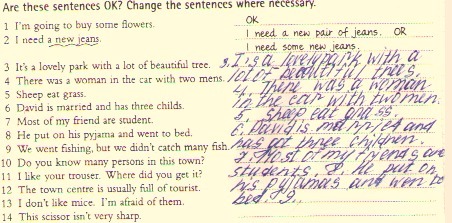 Are these sentences OK? Change the sentences where necessary.
1 I'm going to buy some flowers.
OK
2 I need a new jeans.
I need a new pair of jeans. OR
I need some new jeans.
3 It's a lovely park with a lot of beautiful tree.
4 There was a woman in the car with two mens.
5 Sheep eat grass.
6 David is married and has three childs.
7 Most of my friend are student.
8 He put on his pyjama and went to bed.
9 We went fishing, but we didn't catch many fish.
10 Do you know many persons in this town?
11 I like your trouser. Where did you get it?
12 The town centre is usually full of tourist.
13 I don't like mice. I'm afraid of them.
14 This scissor isn't very sharp.
3. I is a lovely park with a
lot of beautiful trees.
4. There was a woman
in the car with two men.
5. sheep eat grass.
6. David is married and
has got three children.
7. Most of my friends are
students. 8. He put on
his pyjamas and went to
bed. 9.